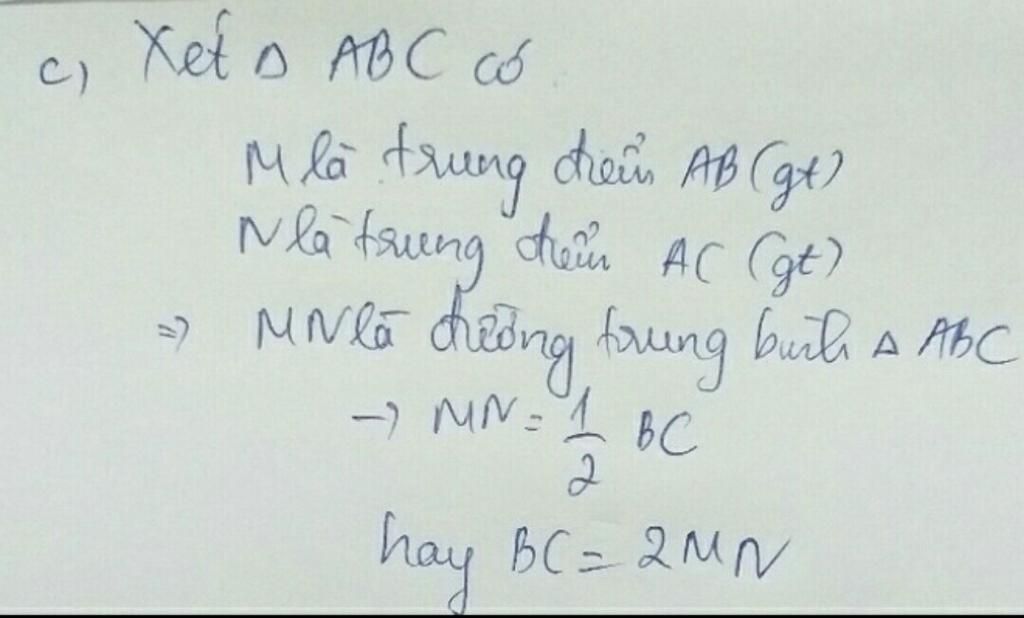 c, Xét Δ ABC có
M là trung điểm AB (gt)
N là trung điểm AC (gt)
=> MN là đường trung bình Δ ABC
-> MN = 1/2 BC
hay BC = 2MN